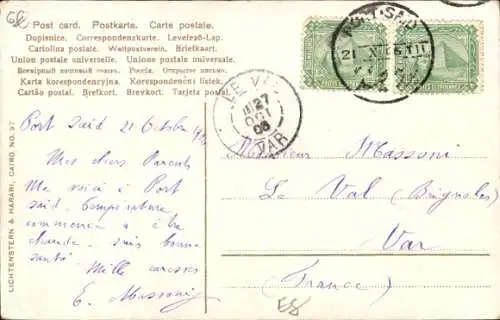 Post card. Postkarte. Carte postale.
Dopisnice. Correspondenzkarte. Levelező-Lap.
Cartolina postale. Weltpostverein. Briefkaart.
Union postale universelle. Unione postale universale.
Всемірный почтовый союзъ. Россія. Открытое письмо.
Karta korespondencyjna. Korespondenční listek.
Cartão postal. Brefkort. Brevkort. Tarjeta postal.
PORT-SAID
21 X
LE VAL
27
OCT
06
VAR
Port Said 21 Octobre
Mes chers Parents
Me voici à Port
Said. Température
commence à être
chaude. suis bonne
santé
Mille caresses
E. Massoni
Monsieur Massoni
Le Val (Brignoles)
Var
(France)
LICHTENSTERN & HARARI, CAIRO, NO. 97